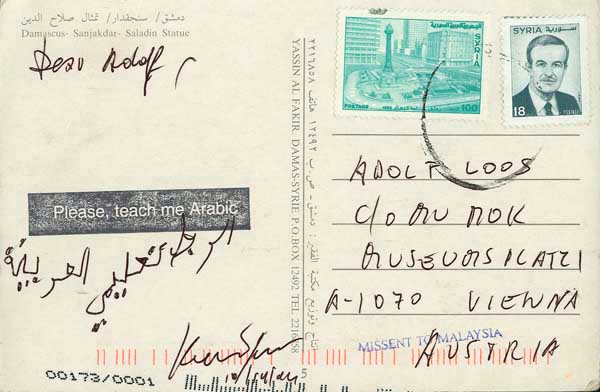 دمشق/ سنجقدار/ تمثال صلاح الدين
Damascus- Sanjakdar- Saladin Statue
Dear Adolf,
Please, teach me Arabic
الرجاء تعليمي العربية
00173/0001
YASSIN AL FAKIR DAMAS-SYRIE P.O.BOX 12492 TEL 2216858
انتاج وتوزيع مكتبة الفقير: دمشق - ص.ب ١٢٤٩٢ هاتف ٢٢١٦٨٥٨
5
SYRIA
POSTAGE
100
SYRIA سورية
18
ADOLF LOOS
C/O MUMOK
MUSEUMSPLATZ 1
A-1070 VIENNA
MISSENT TO MALAYSIA
AUSTRIA